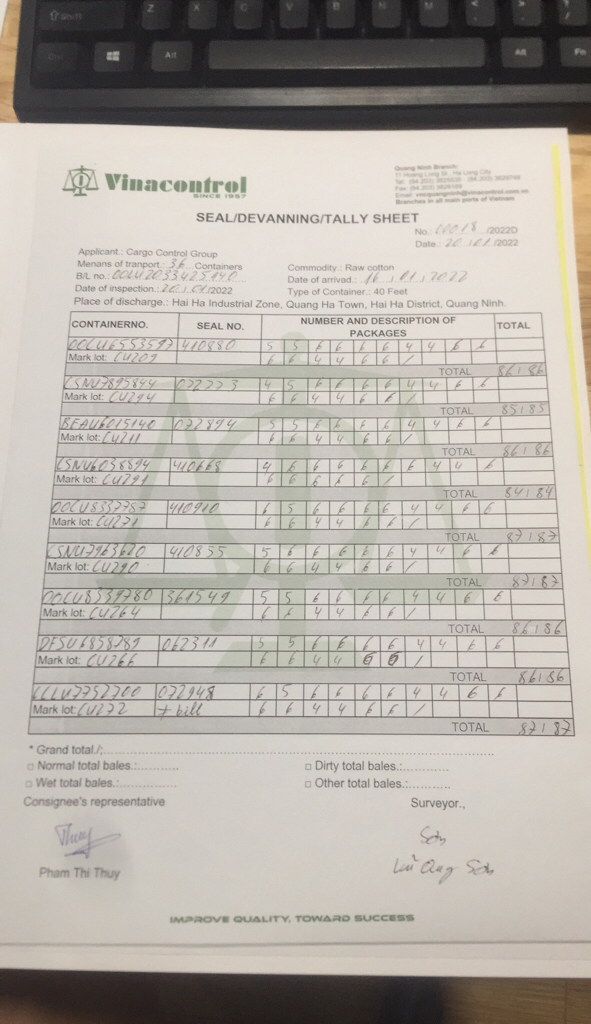 Shift Z X C V B N M
Ctrl Alt Alt Fn
Vinacontrol
SINCE 1957
Quang Ninh Branch:
11 Hoang Long St., Ha Long City
Branches in all main ports of Vietnam
SEAL/DEVANNING/TALLY SHEET
No.: 00018 /2022D
Date.: 20/01/2022
Applicant.: Cargo Control Group
Menans of tranport.: 36 Containers
Commodity.: Raw cotton
B/L no.: OOLU2033425140
Date of arrived.: 16/01/2022
Date of inspection.: 20/01/2022
Type of Container.: 40 Feet
Place of discharge.: Hai Ha Industrial Zone, Quang Ha Town, Hai Ha District, Quang Ninh.
CONTAINERNO. SEAL NO. NUMBER AND DESCRIPTION OF PACKAGES TOTAL
OOLU6553597 410880 5 5 6 6 6 6 4 4 6 6
Mark lot: CU209 6 6 4 4 6 6 /
TOTAL 86/86
072223 4 5 6 6 6 6 4 4 6 6
Mark lot: CU294 6 6 4 4 6 6 /
TOTAL 85/85
BEAU6015140 072894 5 5 6 6 6 6 4 4 6 6
Mark lot: CU211 6 6 4 4 6 6 /
TOTAL 86/86
CSNU6038894 410668 4 6 6 6 6 6 6 4 4 6
Mark lot: CU291 6 6 6 6 6 /
TOTAL 84/84
OOCU8337787 410910 6 5 6 6 6 6 4 4 6 6
Mark lot: CU271 6 6 4 4 6 6 /
TOTAL 87/87
CSNU7963620 410855 5 6 6 6 6 6 4 4 6 6
Mark lot: CU290 6 6 4 4 6 6 /
TOTAL 87/87
OOCU8339780 361549 5 5 6 6 6 6 4 4 6 6
Mark lot: CU264 6 6 4 4 6 6 /
TOTAL 86/86
DFSU6858789 062311 5 5 6 6 6 6 4 4 6 6
Mark lot: CU266 6 6 4 4 6 6 /
TOTAL 86/86
072948 6 5 6 6 6 6 4 4 6 6
Mark lot: CU272 + bill 6 6 4 4 6 6 /
TOTAL 87/87
* Grand total./:
□ Normal total bales.: □ Dirty total bales.:
□ Wet total bales.: □ Other total bales.:
Consignee's representative Surveyor.,
Thuy Sơn
Pham Thi Thuy Lữ Quang Sơn
IMPROVE QUALITY, TOWARD SUCCESS